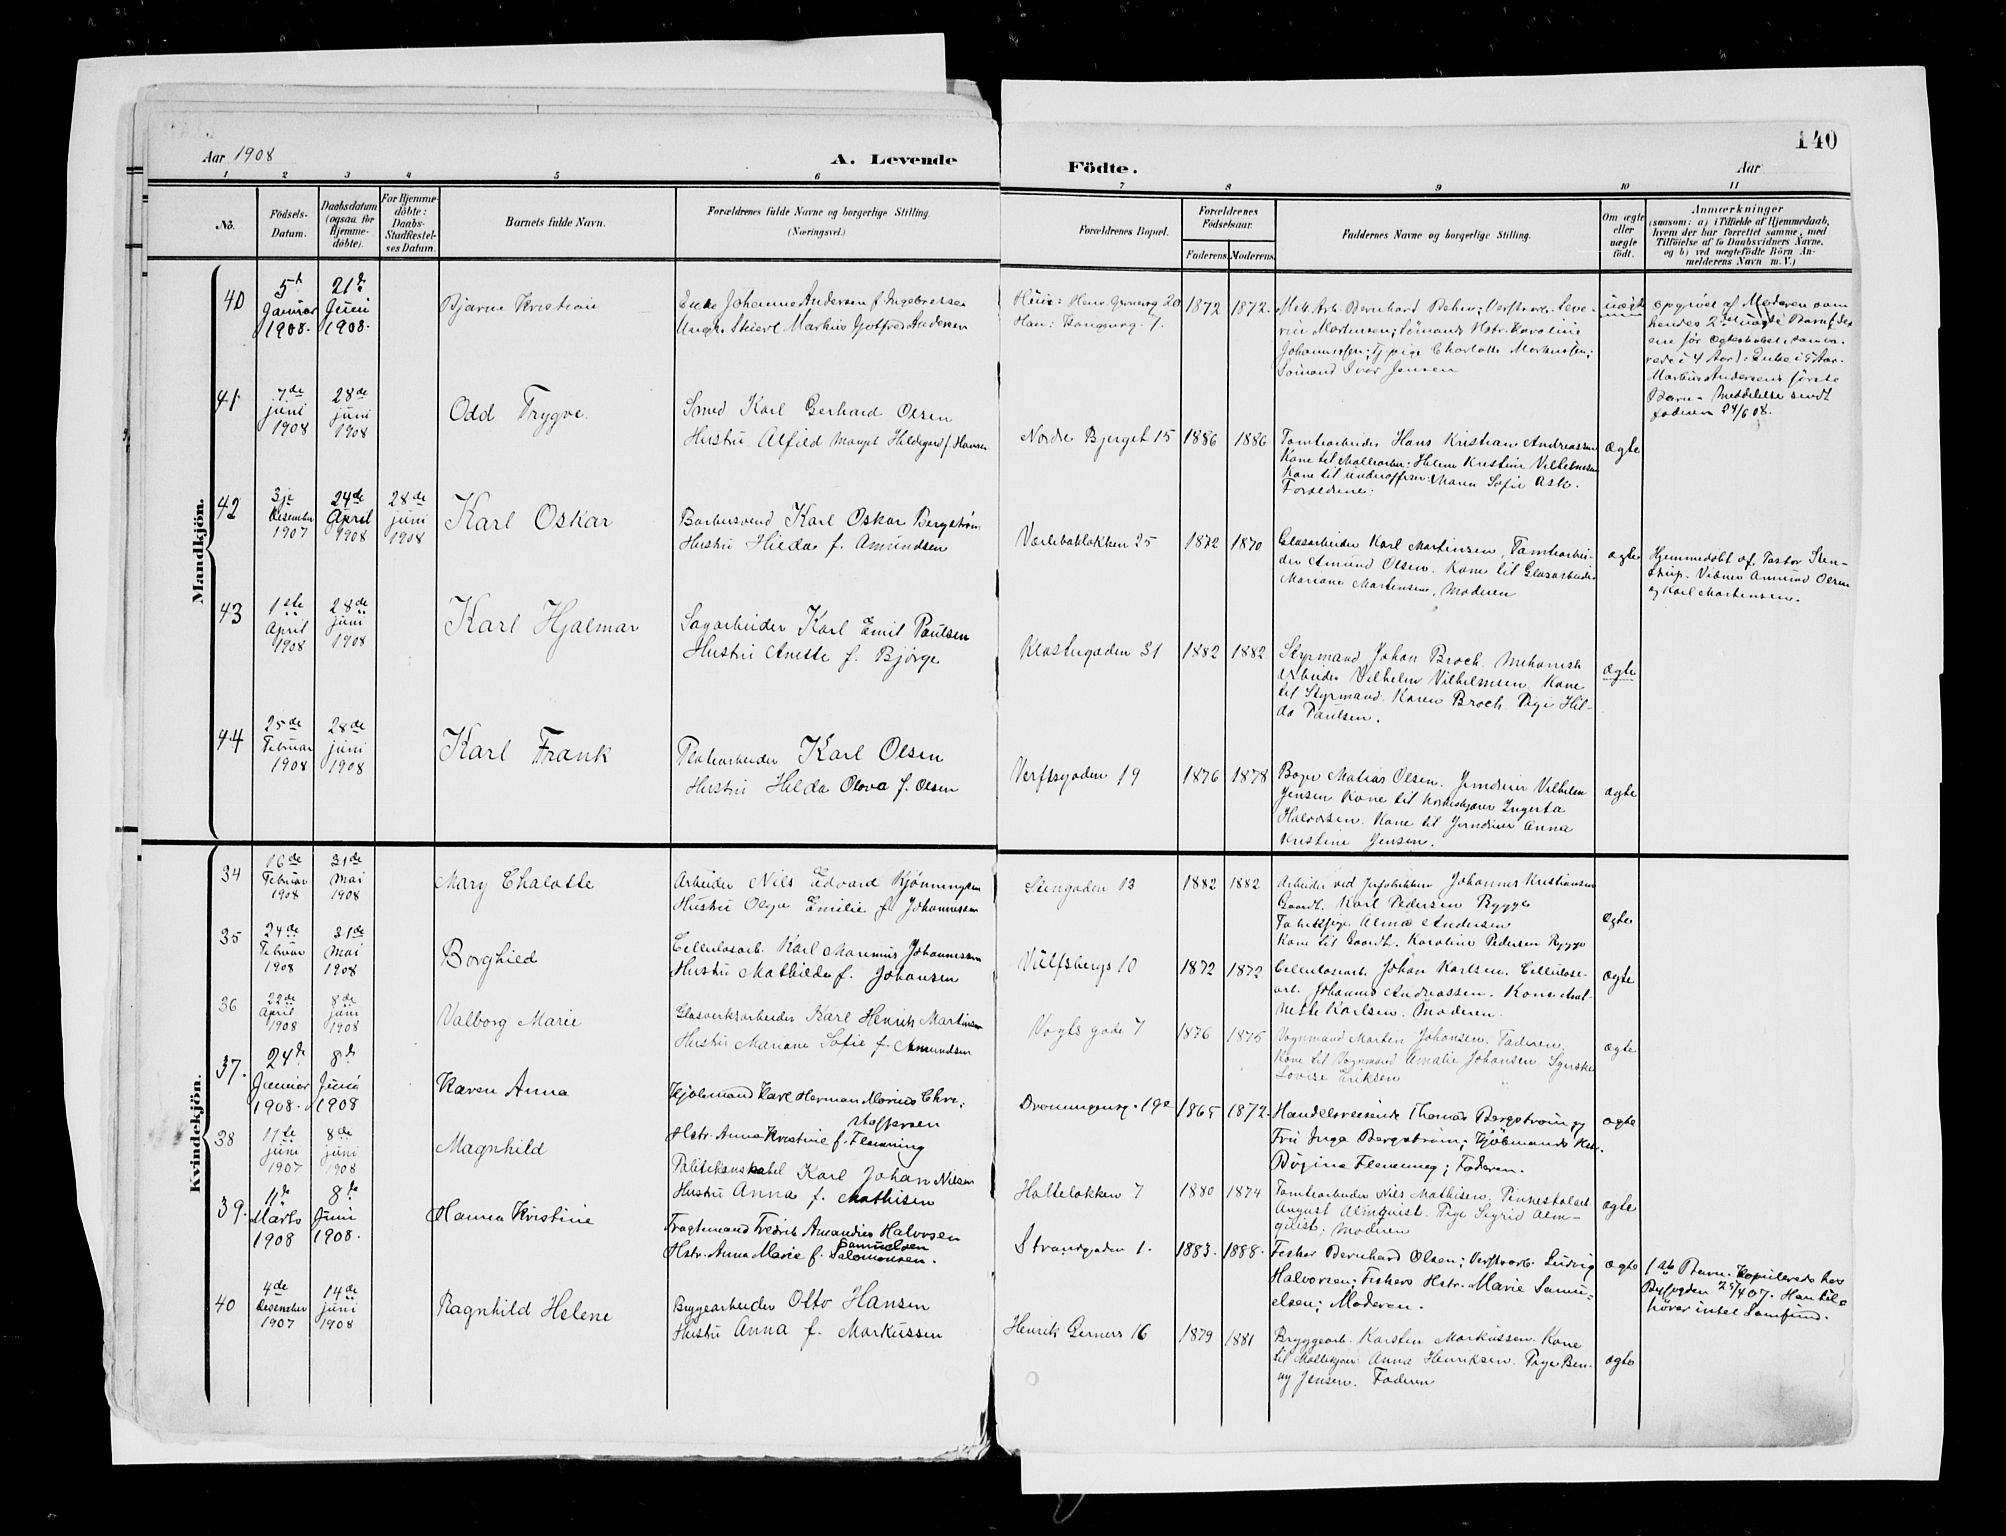 140
Aar 1908
A. Levende
Födte.
Aar
1 2 3 4 5 6 7 8 9 10 11
No.
Födsels-
Datum.
Daabsdatum
(ogsaa for
Hjemme-
döbte).
For Hjemme-
döbte:
Daabs-
Stadfæstel-
ses Datum.
Barnets fulde Navn.
Forældrenes fulde Navne og borgerlige Stilling
(Næringsvei.)
Forældrenes Bopæl.
Forældrenes
Födselsaar.
Faderens. Moderens.
Faddernes Navne og borgerlige Stilling.
Om ægte
eller
uægte
födt.
Anmærkninger
(saasom: a) i Tilfælde af Hjemmedaab,
hvem der har forrettet samme, med
Tilföielse af to Daabsvidners Navne.
og b) ved uægtefödte Börn An-
melderens Navn m. V.)
Mandkjön.
40
5te
Januar
1908.
21de
Juni
1908.
Bjarne Kristian
Enke Johanne Andersen f. Ingebretsen
Ungk. Markus Gotfred Andersen
1872
1872.
Mek. Arb. Bernhard
Martinsen; Sömands Hstr. Karoline
Johannessen; Tj. pige Charlotte Markussen;
Sömand Ivar Jensen
uægte
opgivet af Moderen som
hendes 2det uægte Barn
Markus Andersens første
Barn - Meddelelse sendt
faderen 24/6 08.
41
7de
juni
1908
28de
juni
1908
Odd Trygve.
Smed Karl Gerhard Olsen
Hustru Alfild Margit Hildegard f. Hansen
Nordre Bjerget 15
1886
1886
Tomtearbeider Hans Kristian Andreassen
Kone til Helene Kristine Vilhelmsen
Kone til underofficer: Maren Sofie Ask.
Forældrene.
ægte
42
3je
Desember
1907
24de
April
1908
28de
juni
1908
Karl Oskar
Barbersvend Karl Oskar Bergström
Hustru Hilda f. Amundsen
Værlebakløkken 25
1872
1870
Glasarbeider Karl Martinsen, Tomtearbei-
der Amund Olsen. Kone til Glasarbeider
Mariane Martinsen, Moderen
ægte
Hjemmedøbt af Pastor Sten-
strup. Vidner Amund Olsen
og Karl Martinsen.
43
1ste
April
1908
28de
juni
1908
Karl Hjalmar
Sagarbeider Karl Emil Paulsen
Hustru Anette f. Bjørge
Klostergaden 31
1882
1882
Styrmand Johan Broch. Mekanisk
arbeider Vilhelm Vilhelmsen. Kone
til Styrmand Karen Broch. Pige Hil-
da Paulsen.
ægte
44
25de
Februar
1908
28de
juni
1908
Karl Frank
Pladearbeider Karl Olsen
Hustru Hilda Olova f. Olsen
Verftsgaden 19
1876
1878
Bager Matias Olsen. Jerndreier Vilhelm
Jensen. Kone til Ingerta
Halvorsen. Kone til Jerndreier Anna
Kristine Jensen.
ægte
Kvindekjön.
34
16de
Februar
1908
31de
Mai
1908
Mary Chalotte
Arbeider Nils Edvard Kjönningsen
Hustru Olga Emilie f. Johannessen
Stengaden 13
1882
1882
Arbeider ved Johannes Kristiansen
Gaardb. Karl Pedersen Rygge
Fabrikpige Alma Andersen
Kone til Gaardb. Karoline Pedersen Rygge
ægte
35
24de
Februar
1908
31de
Mai
1908
Borghild
Cellulosearb. Karl Marinius Johannessen
Hustru Mathilde f. Johansen
Vulfsbergs 10
1872
1872
Cellulosearb. Johan Karlsen. Cellulose-
arb. Johannes Andreassen. Kone Ant-
nette Karlsen. Moderen.
ægte
36
22de
April
1908
8de
juni
1908
Valborg Marie
Glasverksarbeider Karl Henrik Martinsen
Hustru Mariane Sofie f. Amundsen
Vogts gade 7
1876
1875
Vognmand Martin Johansen. Faderen.
Kone til Vognmand Amalie Johansen. Syerske
Lovise Eriksen
ægte
37.
24de
Januar
1908.
8de
Juni
1908
Karen Anna
Kjöbmand Karl Herman Marius Chri-
stoffersen
Hstr. Anna Kristine f. Flenning
Dronningensg. 19
1865
1872.
Handelsreisende Thomas Bergström og
Fru Inga Bergström; Kjöbmands Hstr.
Regine Flenning; Faderen.
ægte
38
11te
juni
1907
8de
juni
1908
Magnhild
Politikonstabel Karl Johan Nilsen
Hustru Anna f. Mathisen
Holteløkken 7
1880
1874
Tomtearbeider Nils Mathisen.
August Almquist. Pige Sigrid Alm-
quist; Moderen
ægte
39.
11te
Marts
1908
8de
Juni
1908.
Hanna Kristine
Fragtemand Fredrik Amandus Halvorsen
Hstr. Anna Marie f. Samuelsen
Salomonsen.
Strandgaden 1.
1883.
1888.
Fisker Bernhard Olsen; Verftsarb. Ludvig
Halvorsen; Fiskers Hstr. Marie Samu-
elsen; Moderen.
ægte
1ste Barn. Kopulerede hos
Byfogden 25/4 07. Han til-
hører intet Samfund.
40
4de
Desember
1907
14de
juni
1908
Ragnhild Helene
Bryggearbeider Otto Hansen
Hustru Anna f. Markussen
Henrik Gerners 16
1879
1881
Bryggearb. Karsten Markussen. Kone
til Anna Henriksen. Pige Ben-
ny Jensen. Faderen
ægte